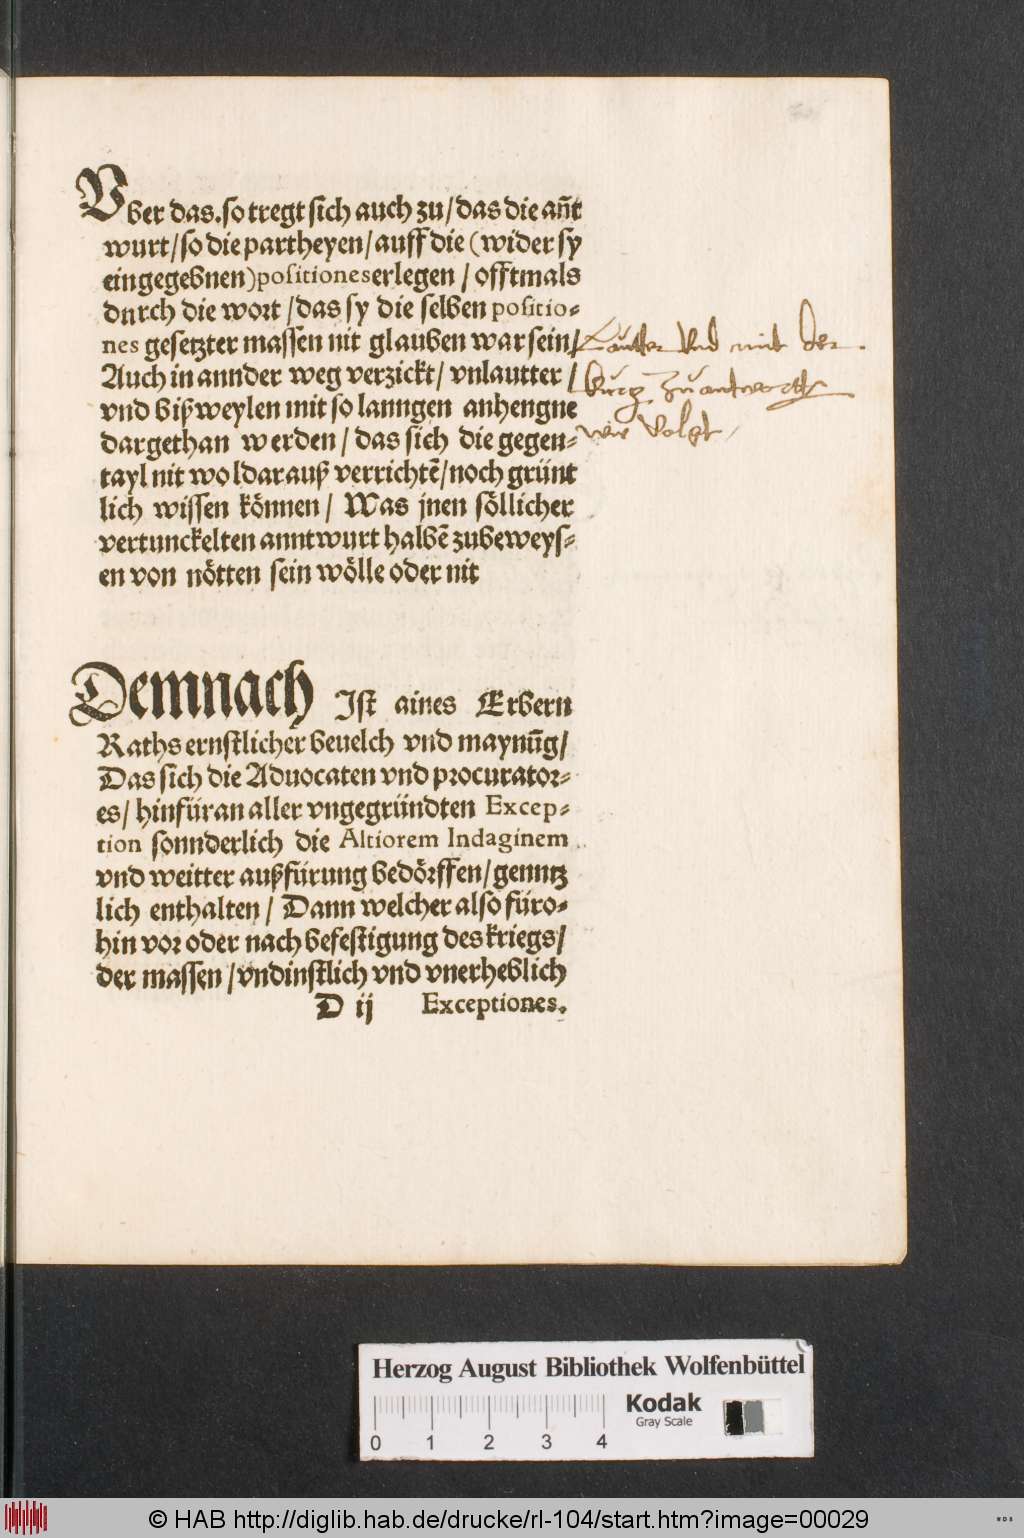 Vber das. so tregt sich auch zu / das die añt
wurt / so die partheyen / auff die (wider sy
eingegebnen) positiones erlegen / offtmals
durch die wort / das sy die selben positio-
nes gesetzter massen nit glauben war sein /
Auch in annder weg verzickt / vnlautter /
vnd bißweylen mit so lanngen anhengne
dargethan werden / das sich die gegen-
tayl nit wol darauß verrichtẽ / noch grünt
lich wissen können / Was jnen söllicher
vertunckelten anntwurt halbẽ zubeweys-
en von nötten sein wölle oder nit
Lautter vnd mit der
kurtz zu antwortten
wie volgt /
Demnach Ist aines Erbern
Raths ernstlicher beuelch vnd maynũg /
Das sich die Aduocaten vnd procurator-
es / hinfüran aller vngegründten Excep-
tion sonnderlich die Altiorem Indaginem
vnd weitter außfürung bedörffen / genntz
lich enthalten / Dann welcher also füro-
hin vor oder nach befestigung des kriegs /
der massen / vndinstlich vnd vnerheblich
D ij Exceptiones.
Herzog August Bibliothek Wolfenbüttel
Kodak
Gray Scale
0 1 2 3 4
© HAB http://diglib.hab.de/drucke/rl-104/start.htm?image=00029